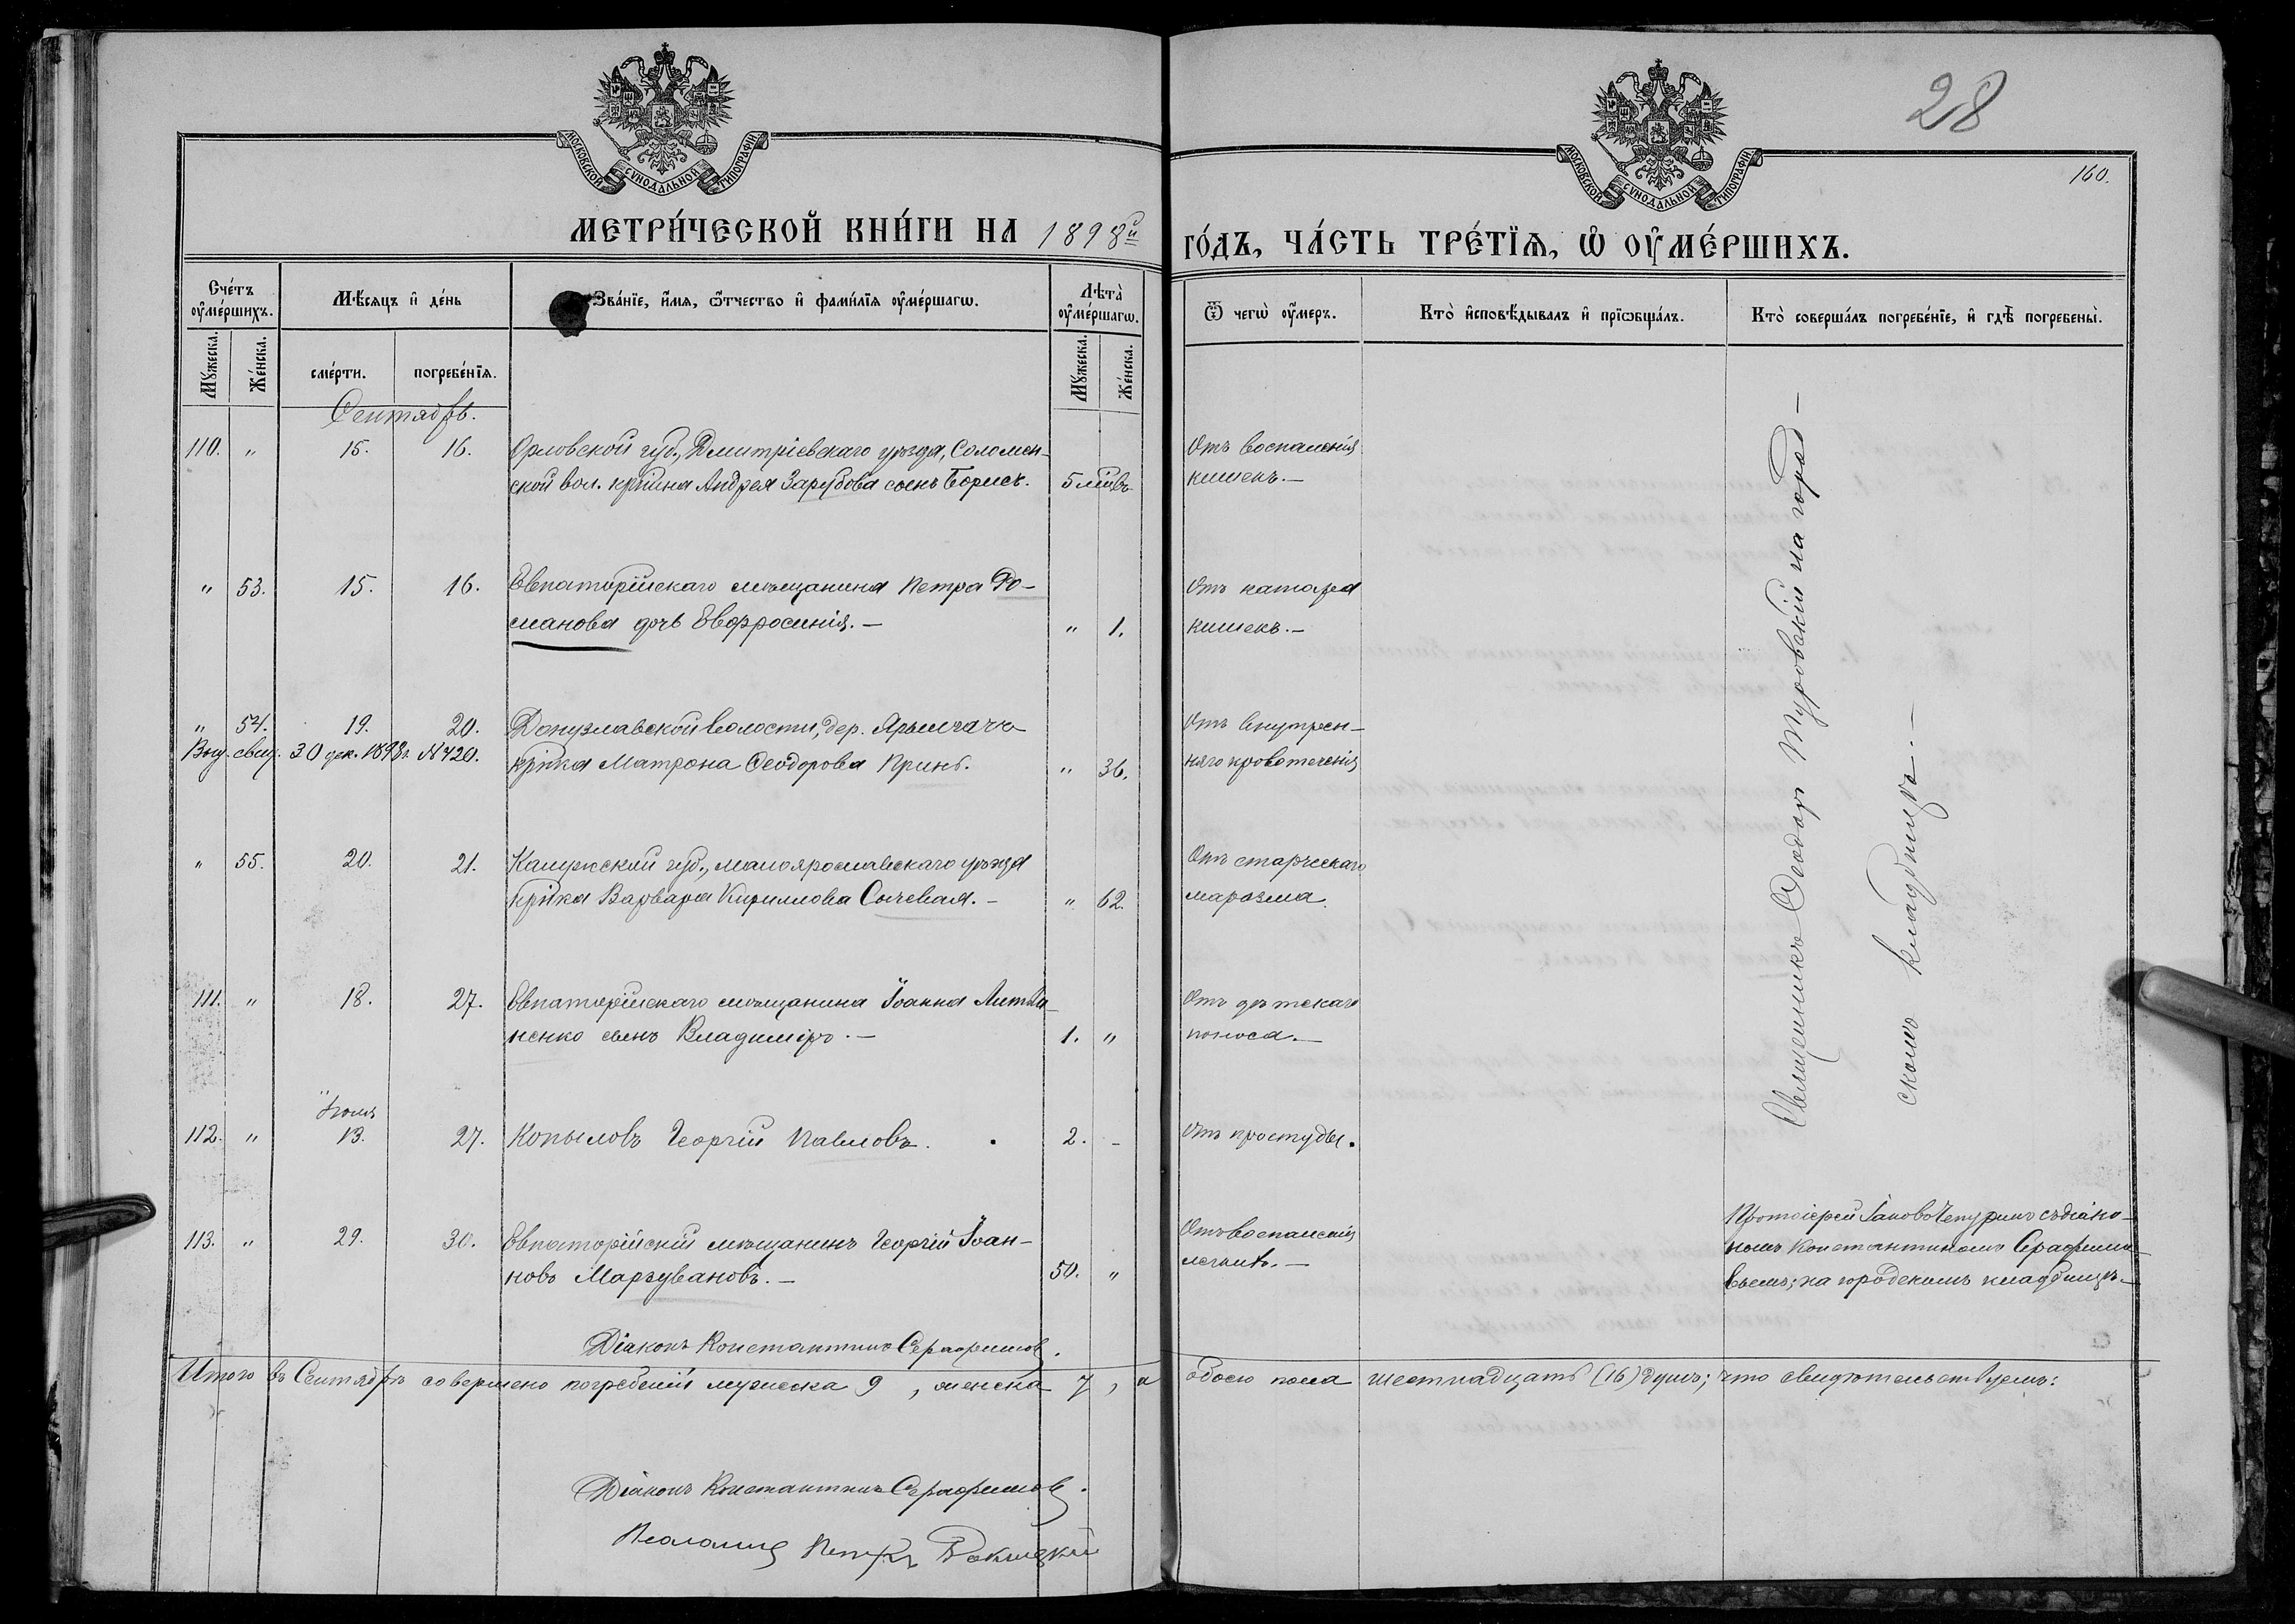 МОСКОВСКОЙ СѴНОДАЛЬНОЙ ТИПОГРАФІИ.
МОСКОВСКОЙ СѴНОДАЛЬНОЙ ТИПОГРАФІИ.
28
160.
МЕТРИ́ЧЕСКОЙ КНИ́ГИ НА 1898й
ГО́ДЪ, ЧА́СТЬ ТРЕ́ТІѦ, Ѡ ОУМЕ́РШИХЪ.
Сче́тъ оумéршихъ.
Мꙋжеска.
Же́нска.
Мѣ́сяцъ и де́нь
сме́рти.
погребе́нїѧ.
Зва́нїе, и́мѧ, ѻтчество и фами́лїѧ оуме́ршагѡ.
Лѣта̀ оуме́ршагѡ.
Мꙋжеска.
Же́нска.
Ѿ чегѡ̀ оу́меръ.
Кто̀ исповѣ́дывалъ и прїѡбща́лъ.
Кто̀ соверша́лъ погребе́нїе, и гдѣ̀ погребены̀.
Сентябрь.
110. " 15. 16. Орловской губ., Дмитріевскаго уѣзда, Соломен-
ской вол. кр̃нина Андрея Зарубова сынъ Борисъ. 5 м̃цвъ
Отъ воспаленія
кишекъ.—
" 53. 15. 16. Евпаторійскаго мѣщанина Петра Ро-
манова дочь Евфросинія.— " 1.
Отъ катарра
кишекъ.—
" 54. 19. 20. Донузлавской волости, дер. Ярылгачъ
Выд. свид. 30 дек. 1898г. № 720. кр̃нка Матрона Ѳеодорова Принь. " 36.
Отъ внутрен-
няго кровотеченія
" 55. 20. 21. Калужской губ., Малоярославскаго уѣзда
кр̃нка Варвара Кириллова Сычевая.— " 62.
Отъ старческаго
маразма.
111. " 18. 27. Евпаторійскаго мѣщанина Іоанна Литви-
ненко сынъ Владиміръ.— 1. "
Отъ дѣтскаго
поноса.—
112. " 13. 27. Копыловъ Георгій Павловъ. 2. -
Отъ простуды.
113. " 29. 30. Евпаторійскій мѣщанинъ Георгій Іоан-
новъ Маргувановъ.— 50. "
Отъ воспаленія
легкихъ.—
Священникъ Ѳеодоръ Туровскій на город-
скомъ кладбищѣ.—
Протоіерей Іаковъ Чепуринъ съ діако-
номъ Константиномъ Серафимо-
вымъ; на городскомъ кладбищѣ.—
Діаконъ Константинъ Серафимовъ.
Итого въ Сентябрѣ совершено погребеній мужеска 9, женска 7, а обоего пола шестнадцать (16) душъ; что свидѣтельствуемъ:
Діаконъ Константинъ Серафимовъ.
Псаломщ Петръ